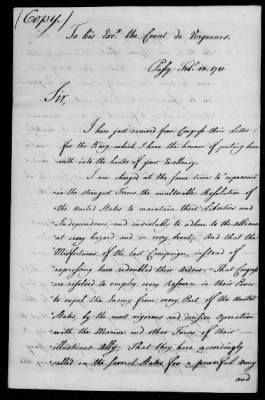 (Copy.)
To his Excy. the Count de Vergennes.
Passy, Feb. 13. 1781.
Sir,
I have just received from Congress their Letter
for the King which I have the honour of putting here-
with into the hands of your Excellency.
I am charged at the same time to represent
in the strongest Terms, the unalterable Resolution of
the United States to maintain their Liberties and
Independence, and inviolably to adhere to the alliance
at every hazard and in every Event. And that the
Misfortunes of the last Campaign, instead of
repressing have redoubled their Ardour; That Congress
are resolved to employ every Resource in their Power
to expel the Enemy from every Part of the United
States, by the most vigorous and decisive Operation
with the Marine and other Forces of their
illustrious Ally. That they have accordingly
called on the several States for a powerful Army
and